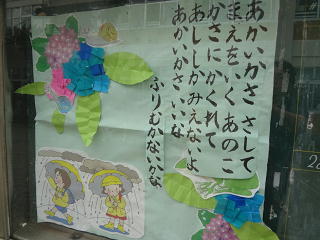 あかいかさ さして
まえをいく あのこ
かさに かくれて
あししか みえないよ
あかいかさ いいな
ふりむかないかな